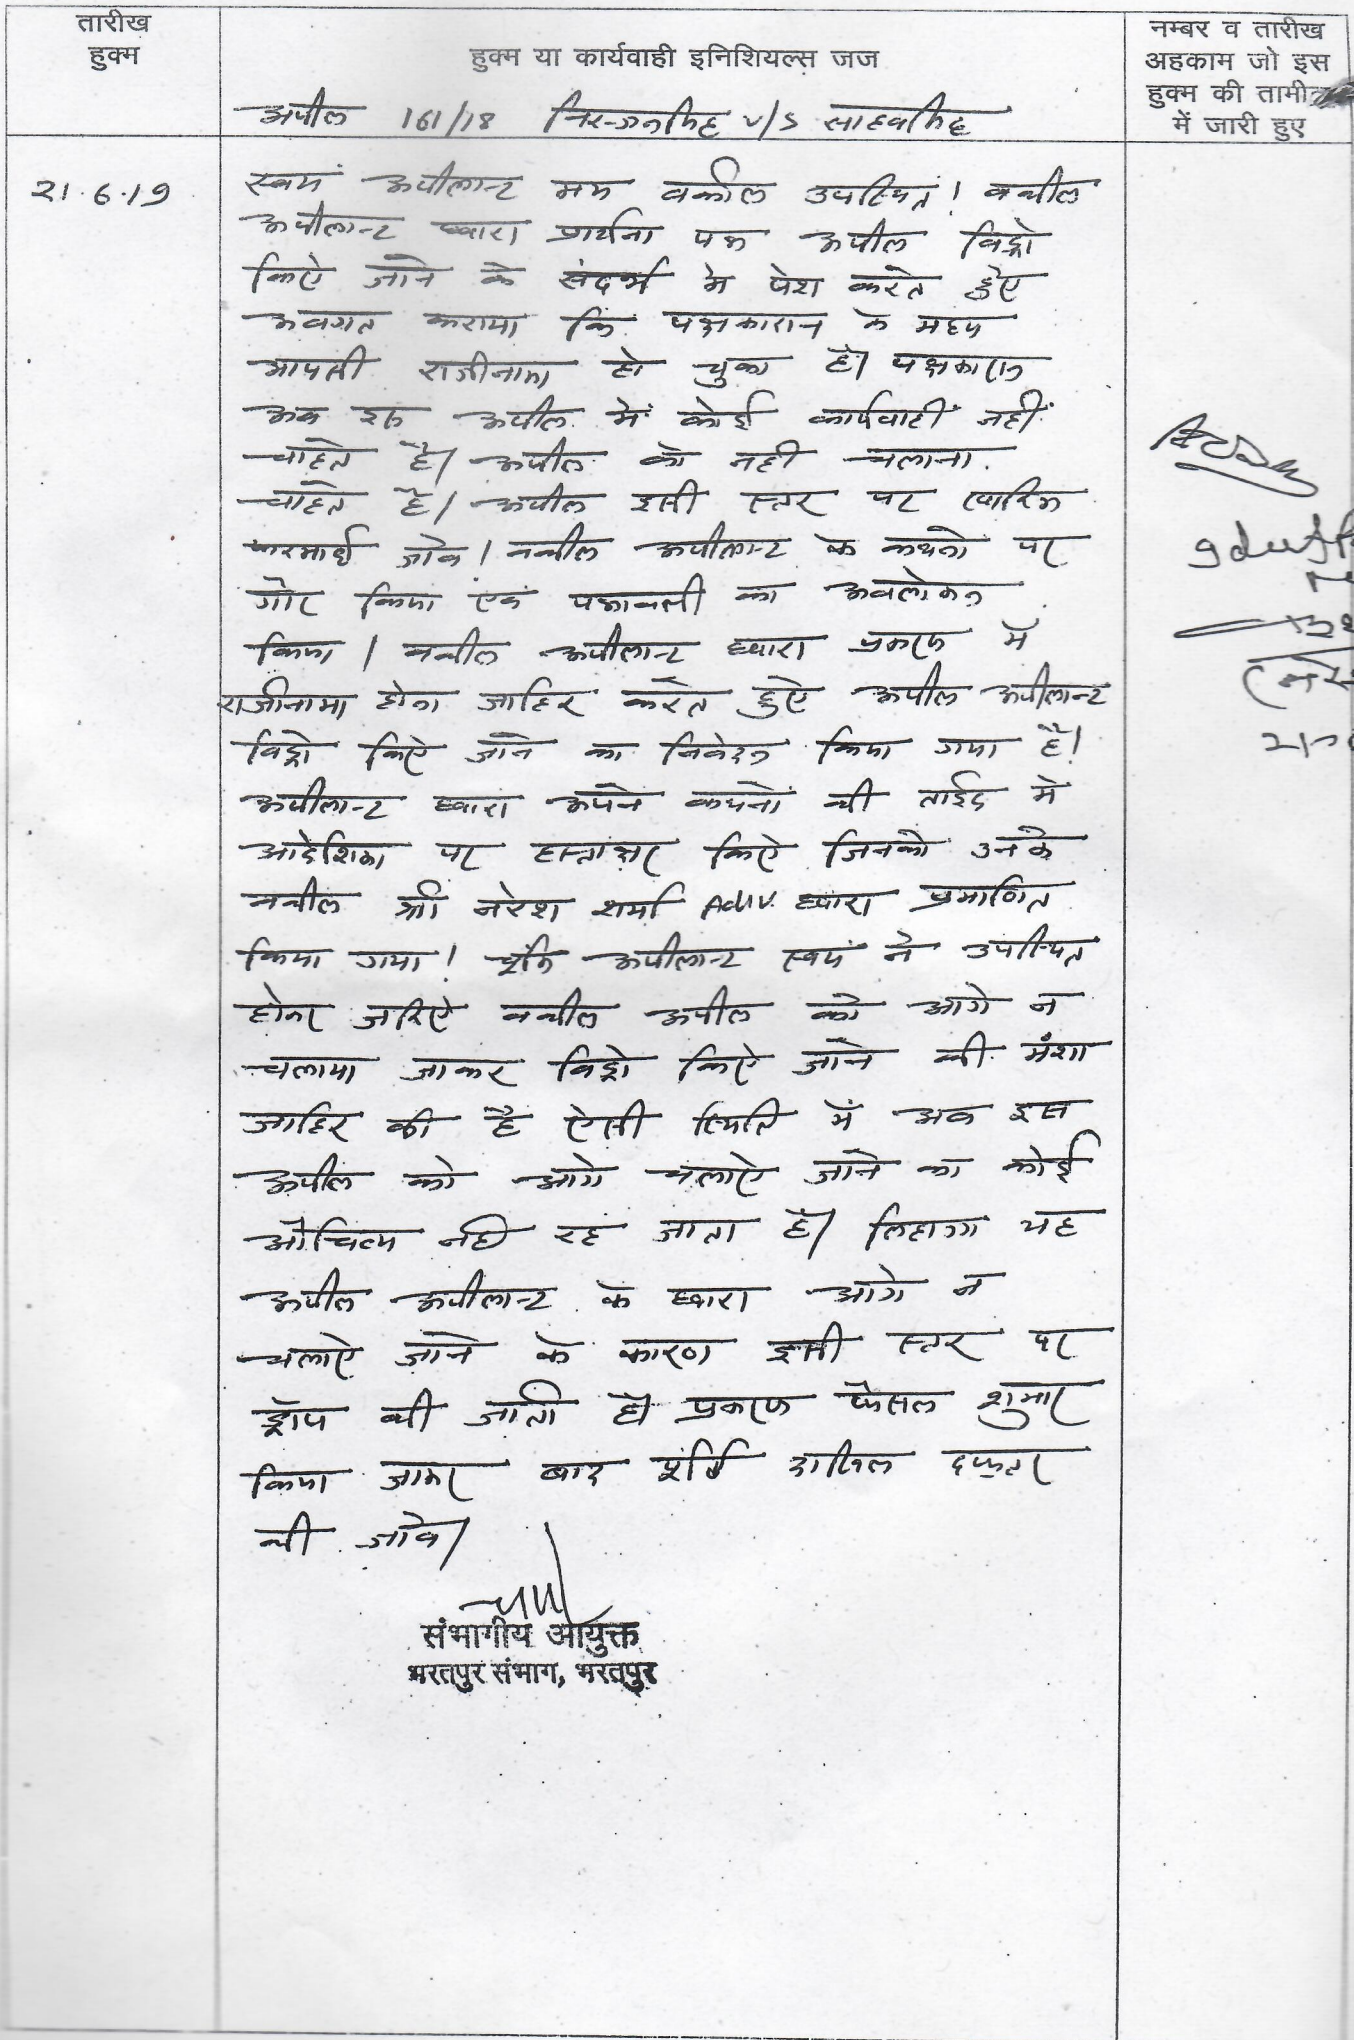 तारीख
हुक्म
हुक्म या कार्यवाही इनिशियल्स जज
नम्बर व तारीख
अहकाम जो इस
हुक्म की तामील
में जारी हुए
अपील 161/18 निरन्जनसिंह v/s साहबसिंह
21.6.19
स्वयं अपीलान्ट मय वकील उपस्थित। वकील
अपीलान्ट द्वारा प्रार्थना पत्र अपील विड्रो
किऐ जाने के संदर्भ मे पेश करते हुऐ
अवगत कराया कि पक्षकारान के मध्य
आपसी राजीनामा हो चुका है। पक्षकारान
अब इस अपील में कोई कार्यवाही नहीं
चाहते है। अपील को नही चलाना
चाहते है। अपील इसी स्तर पर खारिज
फरमाई जावे। वकील अपीलान्ट के कथनो पर
गौर किया एवं पत्रावली का अवलोकन
किया। वकील अपीलान्ट द्वारा प्रकरण में
राजीनामा होना जाहिर करते हुऐ अपील अपीलान्ट
विड्रो किऐ जाने का निवेदन किया गया है।
अपीलान्ट द्वारा अपने कथनों की ताईद मे
आदेशिका पर हस्ताक्षर किऐ जिनको उनके
वकील श्री नरेश शर्मा Adv. द्वारा प्रमाणित
किया गया। चूंकि अपीलान्ट स्वयं ने उपस्थित
होकर जरिऐ वकील अपील को आगे न
चलाया जाकर विड्रो किऐ जाने की मंशा
जाहिर की है ऐसी स्थिति में अब इस
अपील को आगे चलाऐ जाने का कोई
औचित्य नही रह जाता है। लिहाजा यह
अपील अपीलान्ट के द्वारा आगे न
चलाऐ जाने के कारण इसी स्तर पर
ड्रॉप की जाती है। प्रकरण फैसल शुमार
किया जाकर बाद पूर्ति दाखिल दफ्तर
की जावे।
संभागीय आयुक्त
भरतपुर संभाग, भरतपुर